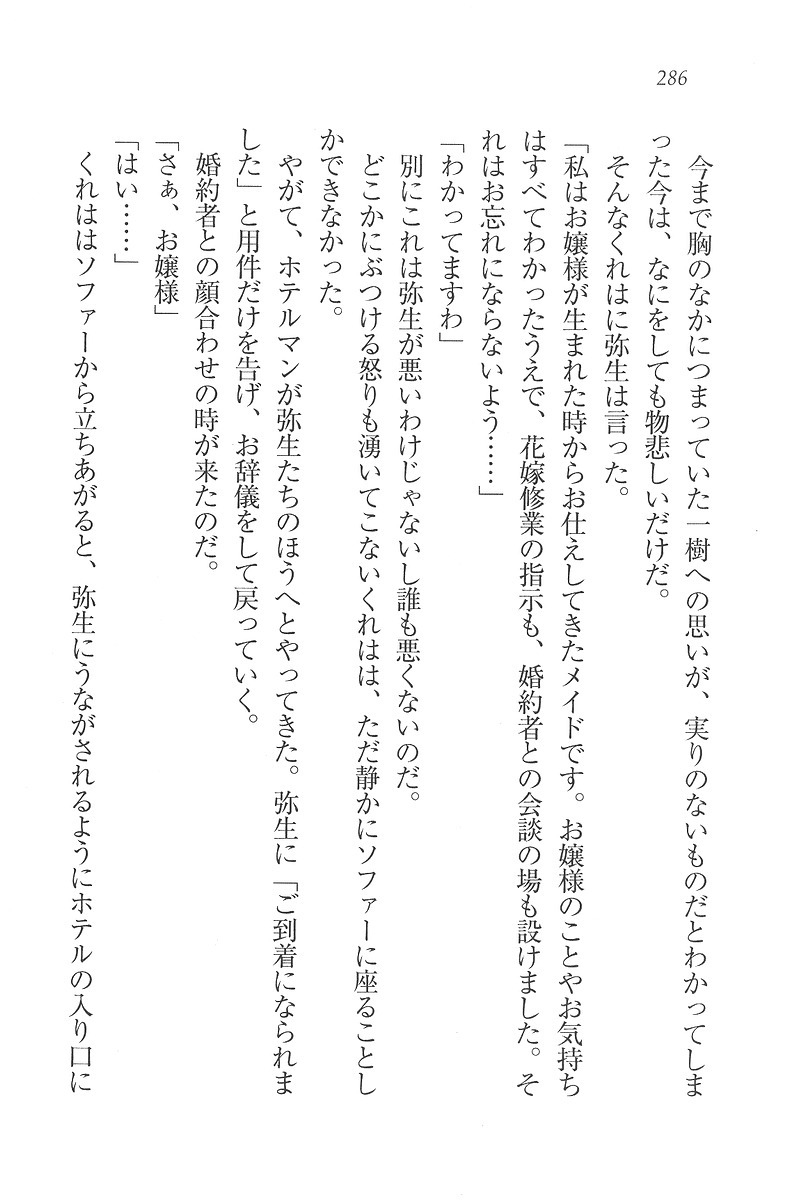 286
　今まで胸のなかにつまっていた一樹への思いが、実りのないものだとわかってしま
った今は、なにをしても物悲しいだけだ。
　そんなくれはに弥生は言った。
「私はお嬢様が生まれた時からお仕えしてきたメイドです。お嬢様のことやお気持ち
はすべてわかったうえで、花嫁修業の指示も、婚約者との会談の場も設けました。そ
れはお忘れにならないよう……」
「わかってますわ」
　別にこれは弥生が悪いわけじゃないし誰も悪くないのだ。
　どこかにぶつける怒りも湧いてこないくれはは、ただ静かにソファーに座ることし
かできなかった。
　やがて、ホテルマンが弥生たちのほうへとやってきた。弥生に「ご到着になられま
した」と用件だけを告げ、お辞儀をして戻っていく。
　婚約者との顔合わせの時が来たのだ。
「さぁ、お嬢様」
「はい……」
　くれははソファーから立ちあがると、弥生にうながされるようにホテルの入り口に